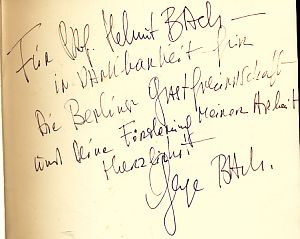 Für Prof. Helmut BAch –
in DAnkbarkeit für
die Berliner Gastfreundschaft
und Deine Förderung meiner Arbeit
Herzlichst
BAch.